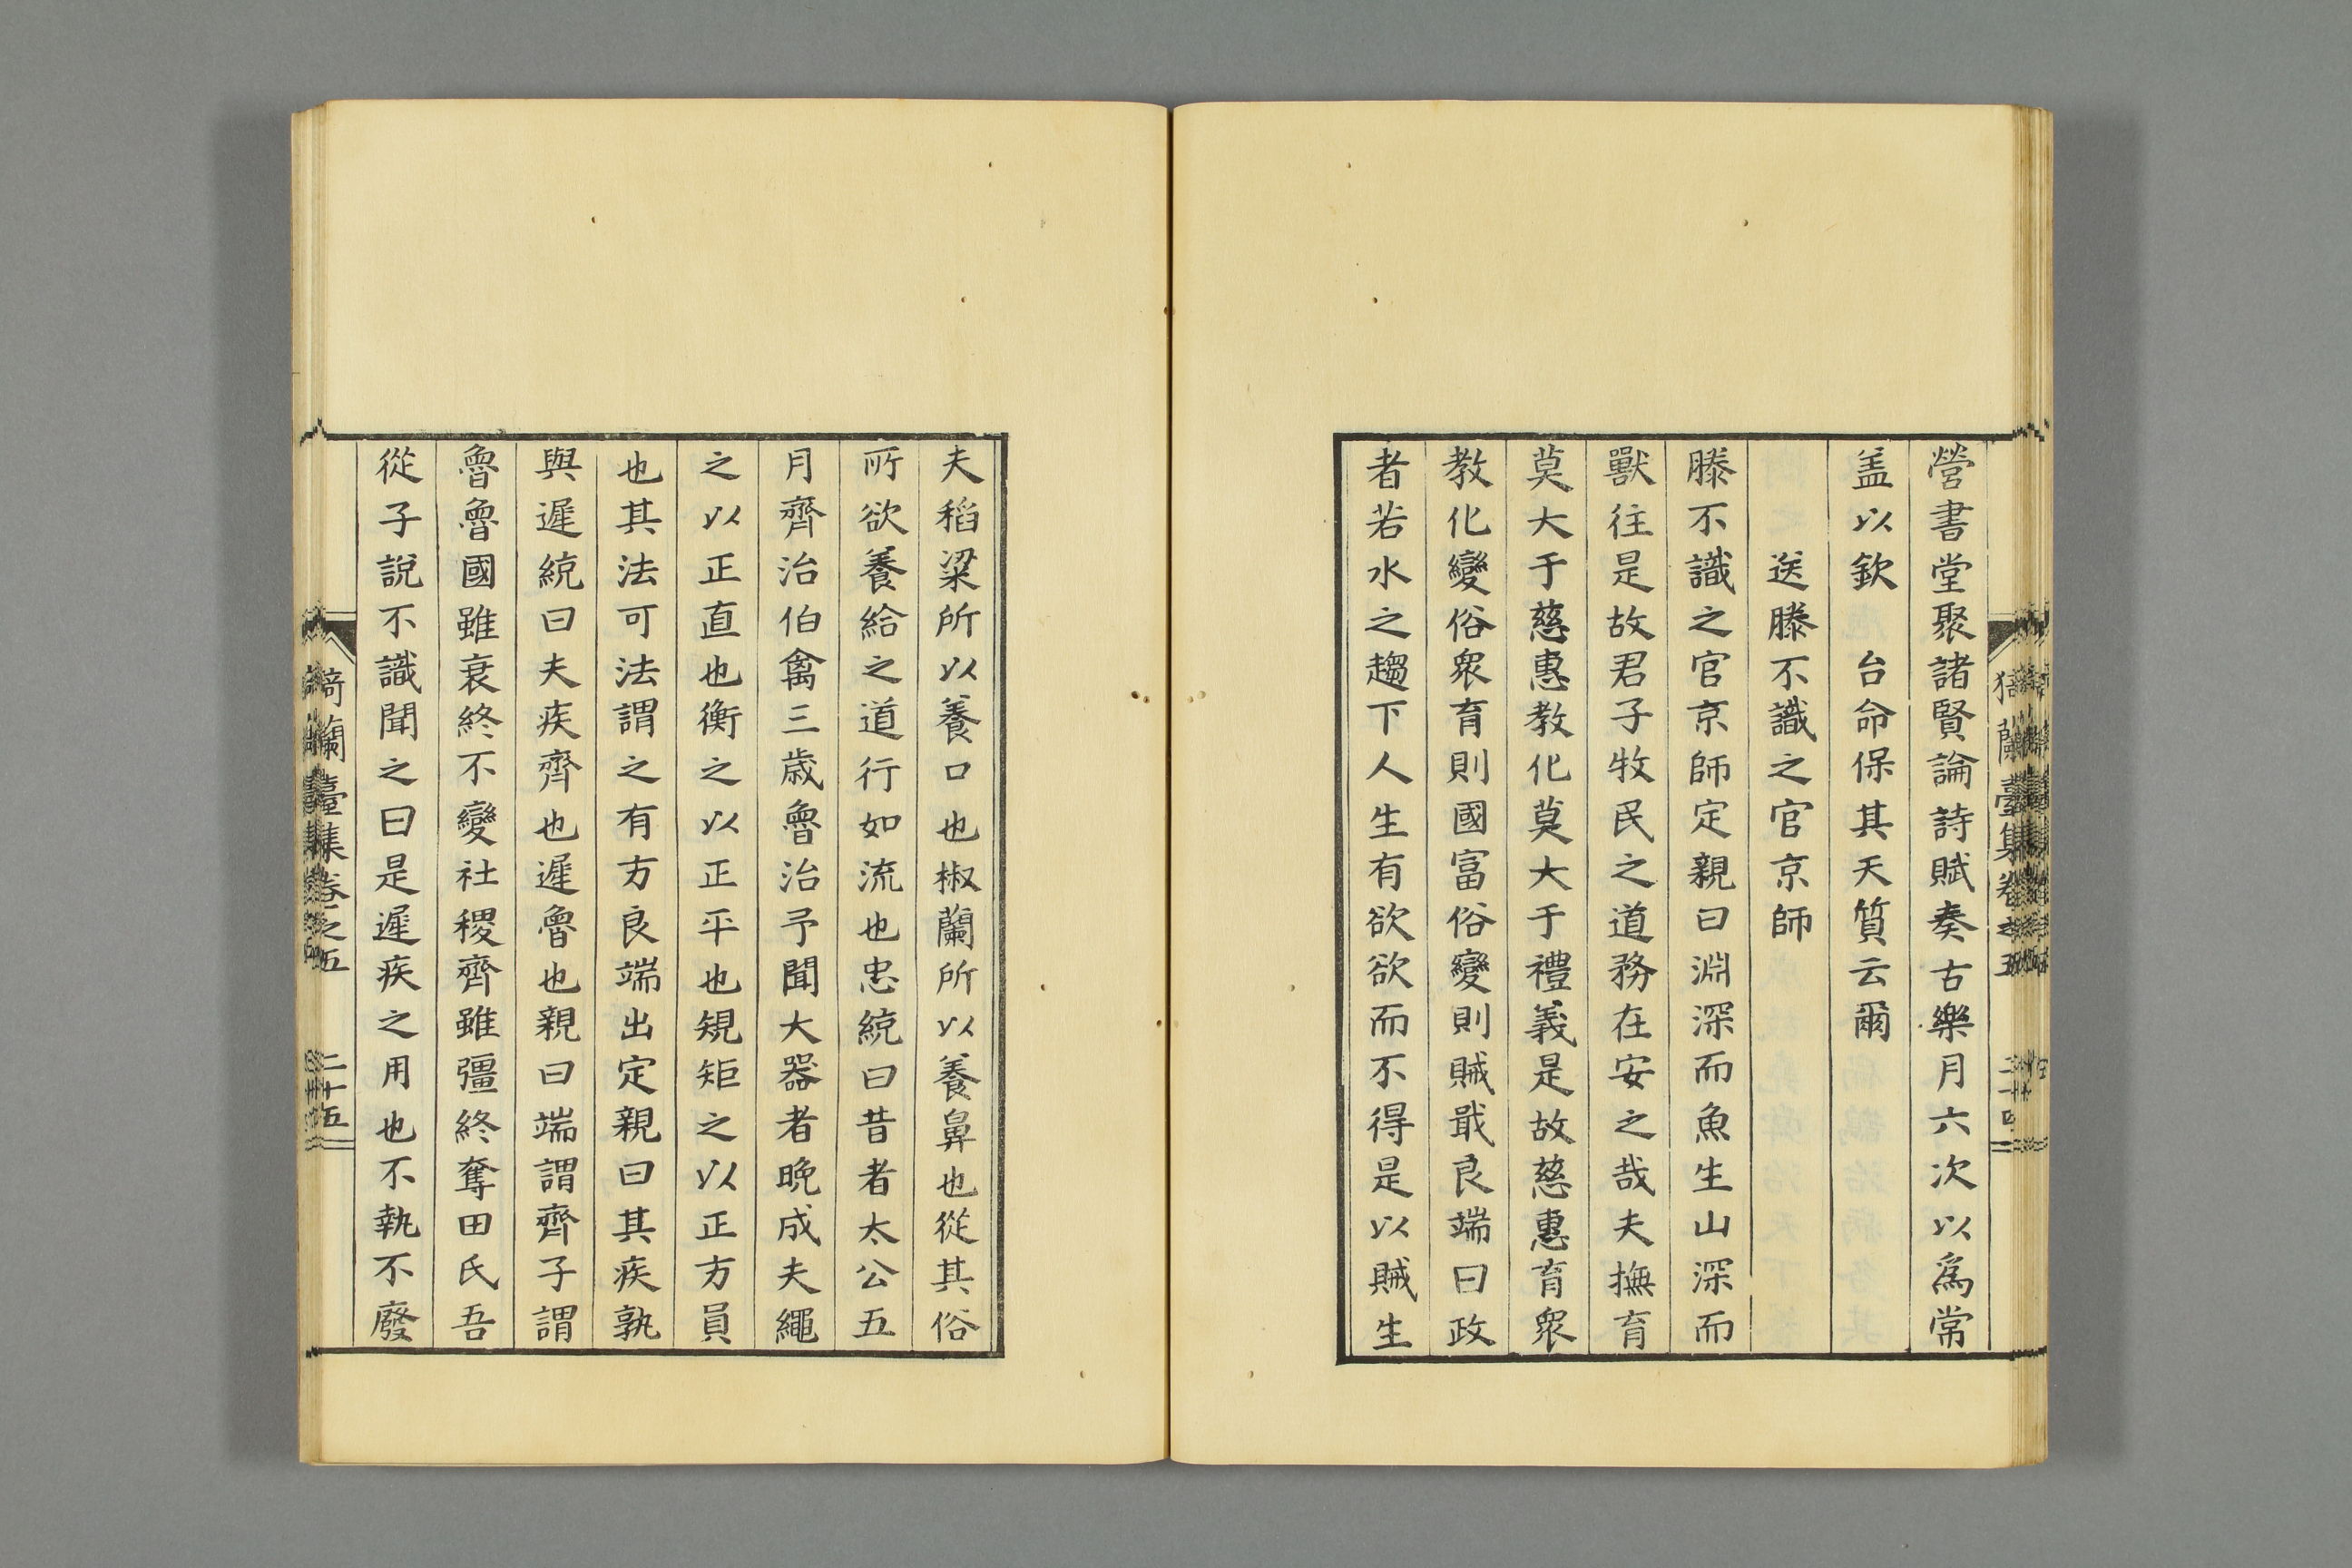 營書堂聚諸賢論詩賦奏古樂月六次以爲常
盖以欽　台命保其天質云爾
送滕不識之官京師
滕不識之官京師定親曰淵深而魚生山深而
獸往是故君子牧民之道務在安之哉夫撫育
莫大于慈惠教化莫大于禮義是故慈惠育衆
教化變俗衆育則國富俗變則賊戢良端曰政
者若水之趨下人生有欲欲而不得是以賊生
夫稻粱所以養口也椒蘭所以養鼻也從其俗
所欲養給之道行如流也忠統曰昔者太公五
月齊治伯禽三歳魯治予聞大器者晚成夫繩
之以正直也衡之以正平也規矩之以正方員
也其法可法謂之有方良端出定親曰其疾孰
與遲統曰夫疾齊也遲魯也親曰端謂齊子謂
魯魯國雖衰終不變社稷齊雖彊終奪田氏吾
從子説不識聞之曰是遲疾之用也不執不廢
猗蘭臺集卷之五
二十五